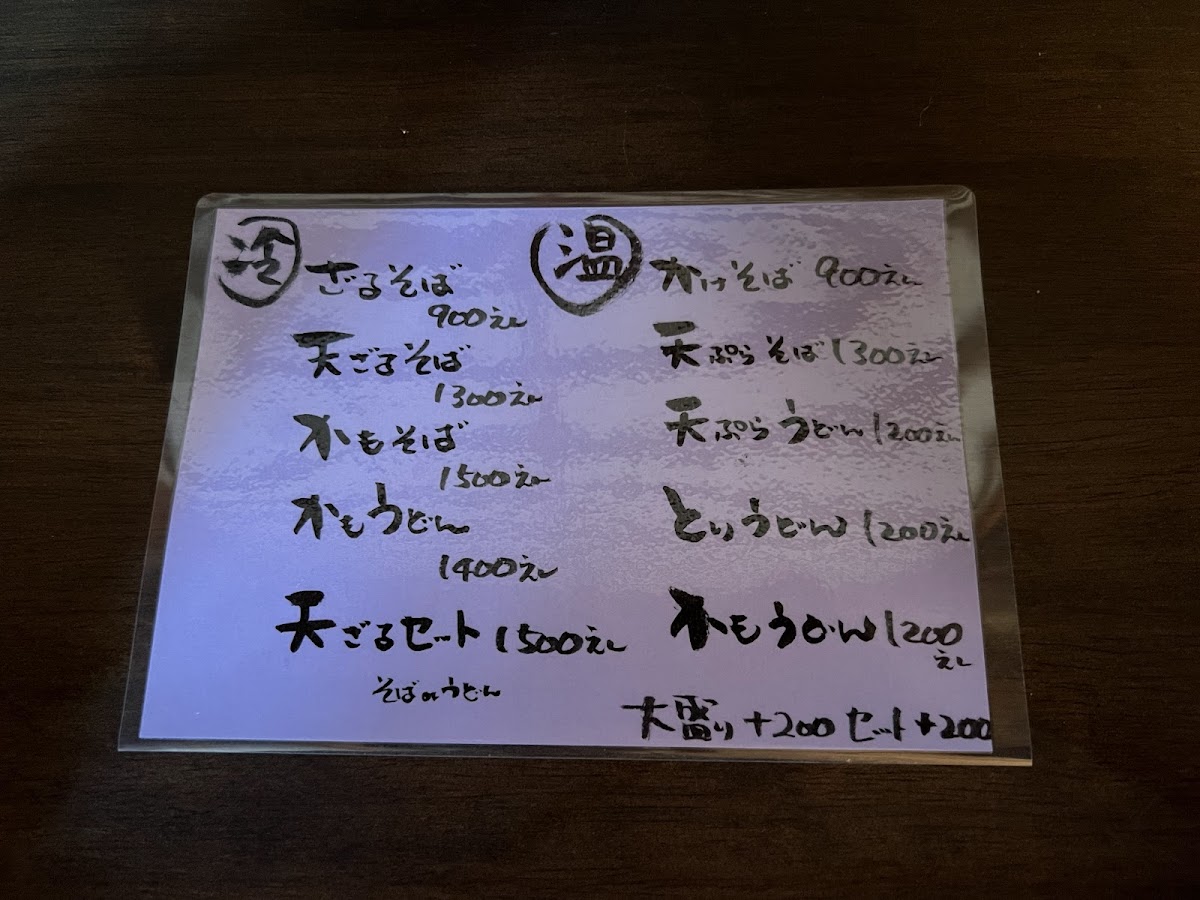 冷
ざるそば
900えん
天ざるそば
1300えん
かもそば
1500えん
かもうどん
1400えん
天ざるセット 1500えん
そばorうどん
温
かけそば 900えん
天ぷらそば 1300えん
天ぷらうどん 1200えん
とりうどん 1200えん
かもうどん 1200
えん
大盛り+200 セット+200